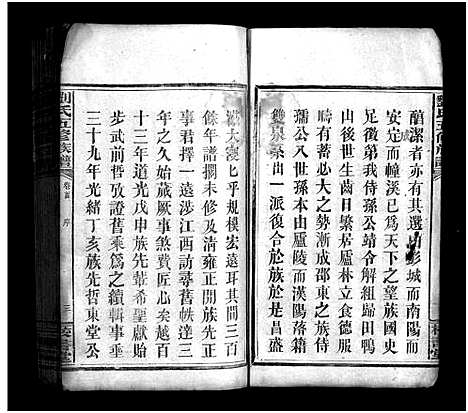 劉氏五修族譜
醇潔者亦有其選由彭城而南陽而
安定而幛溪已為天下之望族國史
足徵時我侍孫公靖令解組歸田鴨
山後世生齒日繁居廬林立食德服
疇有蓄必大之勢漸成邵東之族侍
孺公入世孫本由廬陵而漢陽落籍
雙泉系出一派復合於族於是昌盛
龐大寖乎規模宏遠耳其間三百
餘年譜擱未修及清雍正開族先正
事君擇一遠涉江西訪尋舊帙達三
年之久始蕆厥事式穀貽謀有清嘉
十三年道光戊申族先輩希聖獻貽
步武前哲攷證舊乘為之續輯事垂
三十九年光緒丁亥族先哲東堂公
劉氏五修族譜
卷首
序
三